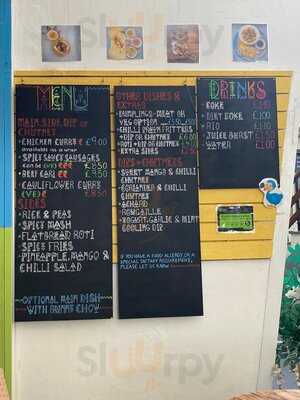 MENU
MAIN SIDE DIP or
CHUTNEY
- CHICKEN CURRY £9.00
- SPICY SAUSY SAUSAGES
£8.50
- BEEF CARI £9.50
- CAULIFLOWER CURRY
(VE) £8.50
SIDES
- RICE & PEAS
- SPICY MASH
- FLATBREAD ROTI
- SPICY FRIES
- PINEAPPLE, MANGO &
CHILLI SALAD
OPTIONAL MAIN DISH
WITH
OTHER DISHES &
EXTRAS
- DUMPLINGS-MEAT OR
VEG OPTION
- CHILLI FRITTERS
+ DIP
- ROTI + DIP
- EXTRA SIDES
DIPS + CHUTNEYS
- SWEET MANGO & CHILLI
CHUTNEY
- CORIANDER & CHILLI
CHUTNEY
- ACHARD
- ROUGAILLE
- YOGURT, GARLIC & MINT
COOLING DIP
IF YOU HAVE A FOOD ALLERGY OR A
SPECIAL DIETARY REQUIREMENT,
PLEASE LET US KNOW
DRINKS
- COKE
- DIET COKE
- RIO
- JUICE BURST
- WATER £1.00
Sluurpy